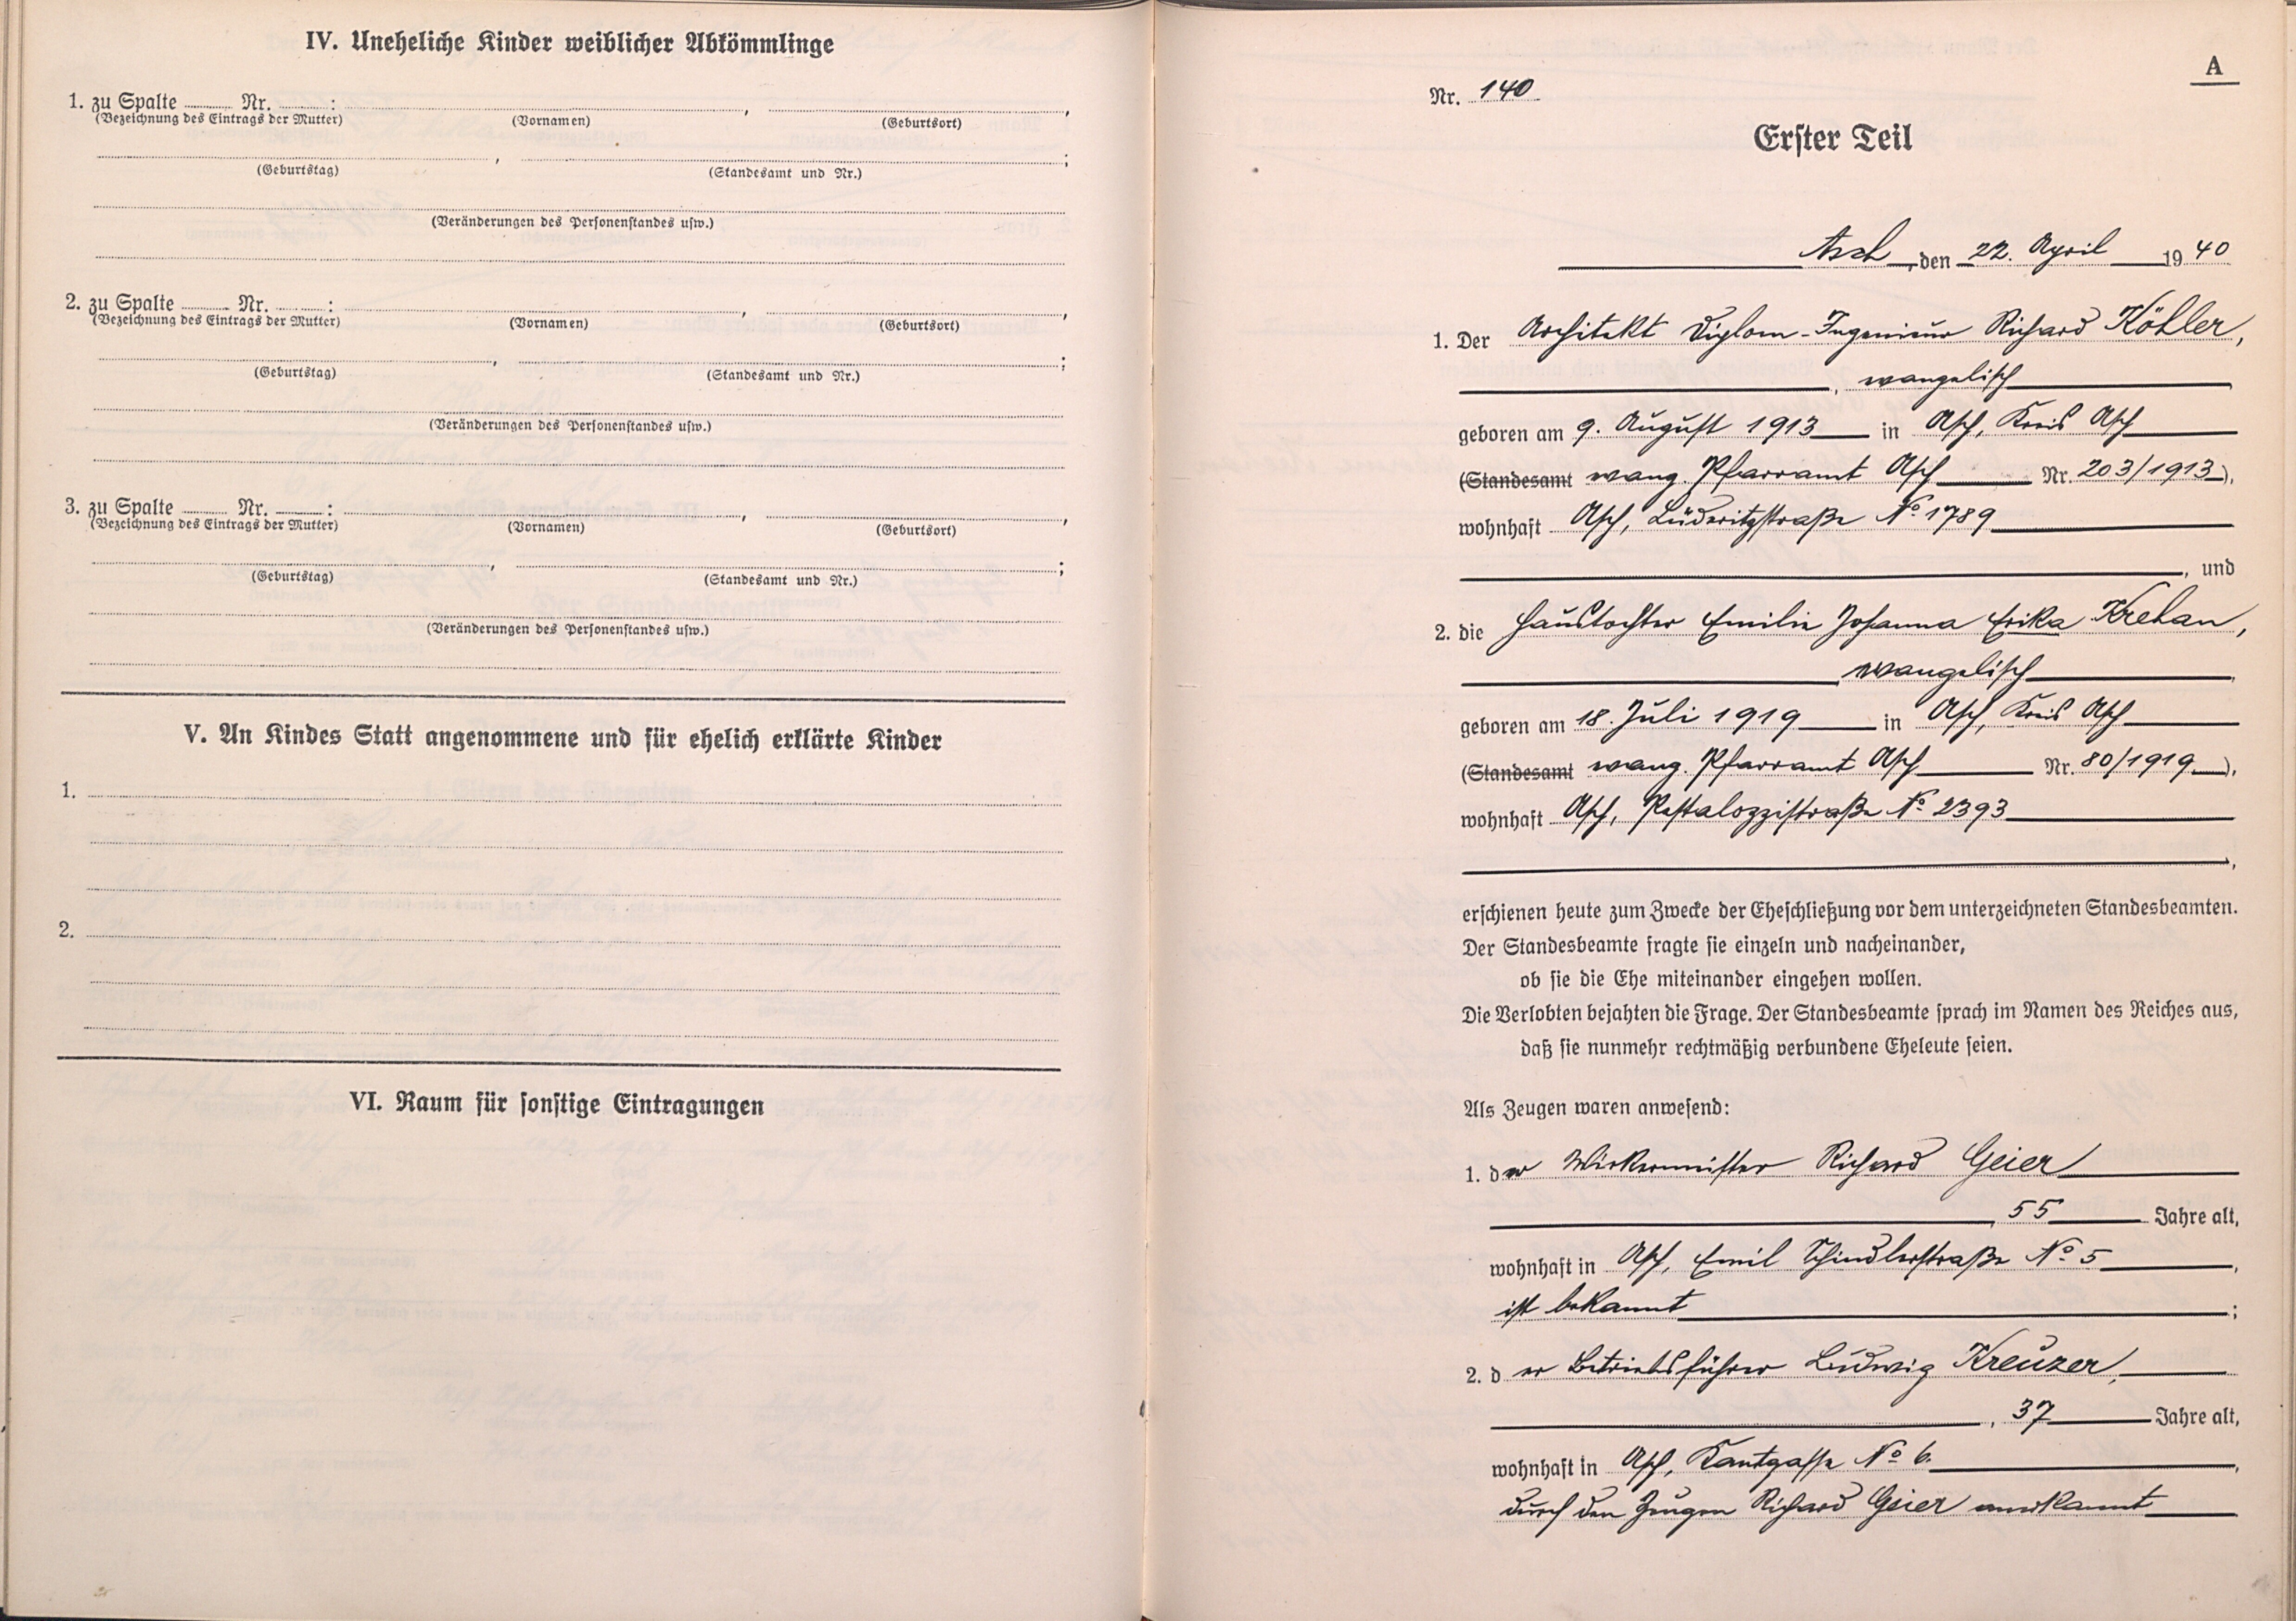 IV. Uneheliche Kinder weiblicher Abkömmlinge
1. zu Spalte ........ Nr. ........ :
(Bezeichnung des Eintrags der Mutter) (Vornamen) (Geburtsort)
(Geburtstag) (Standesamt und Nr.)
(Veränderungen des Personenstandes usw.)
2. zu Spalte ........ Nr. ........ :
(Bezeichnung des Eintrags der Mutter) (Vornamen) (Geburtsort)
(Geburtstag) (Standesamt und Nr.)
(Veränderungen des Personenstandes usw.)
3. zu Spalte ........ Nr. ........ :
(Bezeichnung des Eintrags der Mutter) (Vornamen) (Geburtsort)
(Geburtstag) (Standesamt und Nr.)
(Veränderungen des Personenstandes usw.)
V. An Kindes Statt angenommene und für ehelich erklärte Kinder
1.
2.
VI. Raum für sonstige Eintragungen
A
Nr. 140
Erster Teil
Asch, den 22. April 1940
1. Der Architekt Diplom-Ingenieur Richard Köhler,
, evangelisch
geboren am 9. August 1913 in Asch, Kreis Asch
(Standesamt evang. Pfarramt Asch Nr. 203/1913),
wohnhaft Asch, Lüderitzstraße No 1789
, und
2. die Haustochter Emilie Johanna Erika Krehan,
evangelisch,
geboren am 18. Juli 1919 in Asch, Kreis Asch
(Standesamt evang. Pfarramt Asch Nr. 80/1919),
wohnhaft Asch, Pestalozzistraße No 2393
,
erschienen heute zum Zwecke der Eheschließung vor dem unterzeichneten Standesbeamten.
Der Standesbeamte fragte sie einzeln und nacheinander,
ob sie die Ehe miteinander eingehen wollen.
Die Verlobten bejahten die Frage. Der Standesbeamte sprach im Namen des Reiches aus,
daß sie nunmehr rechtmäßig verbundene Eheleute seien.
Als Zeugen waren anwesend:
1. der Wirkermeister Richard Geier
, 55 Jahre alt,
wohnhaft in Asch, Emil Schindlerstraße No 5,
ist bekannt;
2. der Betriebsführer Ludwig Kreuzer,
, 37 Jahre alt,
wohnhaft in Asch, Kantgasse No 6.,
durch den Zeugen Richard Geier anerkannt